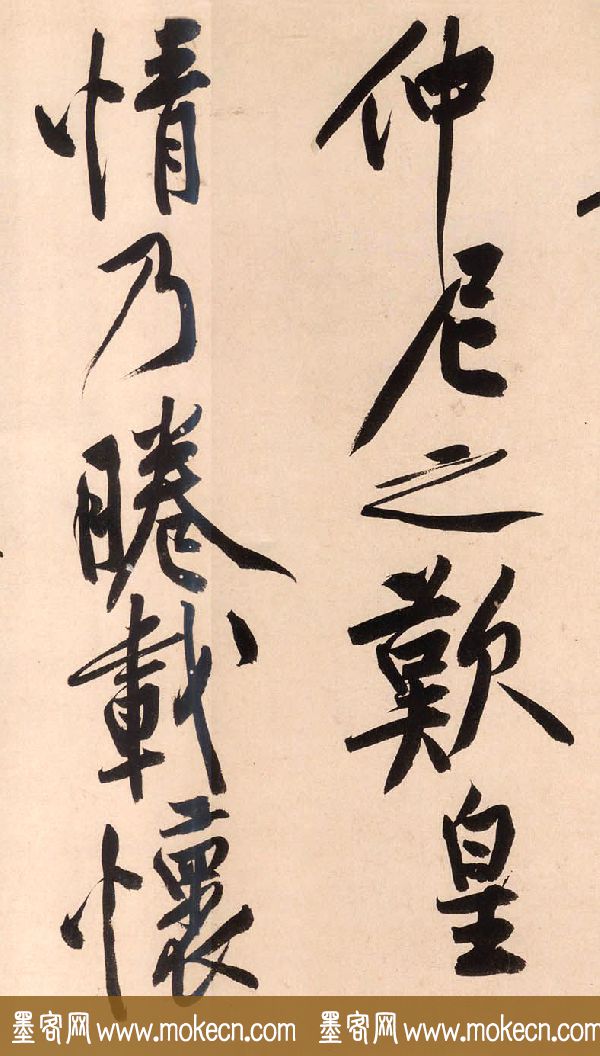 仲尼之歎皇
情乃睠載懷
墨客网 www.mokecn.com 墨客网 www.mokecn.com